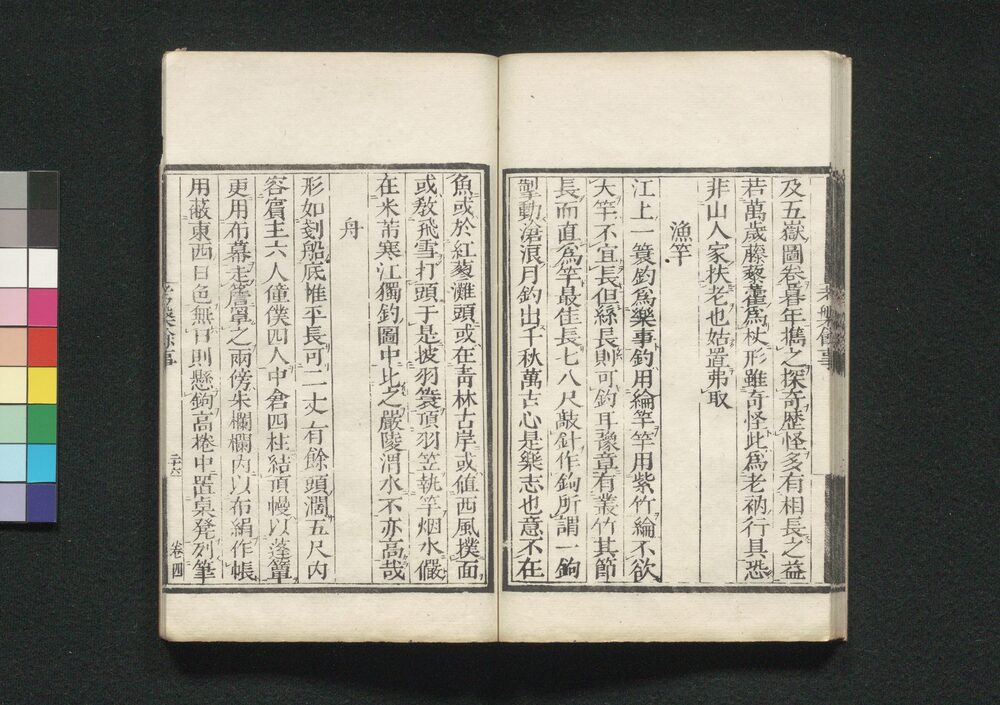 及五嶽圖卷暮年攜之探奇歷怪多有相長之益
若萬歲藤藜藿爲杖形雖奇怪此爲老衲行具恐
非山人家扶老也姑置弗取
漁竿
江上一蓑釣爲樂事釣用綸竿竿用紫竹綸不欲
大竿不宜長但絲長則可釣耳豫章有叢竹其節
長而直爲竿最佳長七八尺敲針作鉤所謂一鉤
掣動滄浪月釣出千秋萬古心是樂志也意不在
魚或於紅蓼灘頭或在青林古岸或值西風撲面
或教飛雪打頭于是披羽簑頂羽笠執竿烟水儼
在米芾寒江獨釣圖中比之嚴陵渭水不亦高哉
舟
形如剗船底惟平長可二丈有餘頭濶五尺内
容賓主六人僮僕四人中倉四柱結頂幔以蓬簟
更用布幕走簷罩之兩傍朱欄欄内以布絹作帳
用蔽東西日色無日則懸鉤高捲中置桌凳列筆
考槃餘事
二十六
卷四
考槃餘事